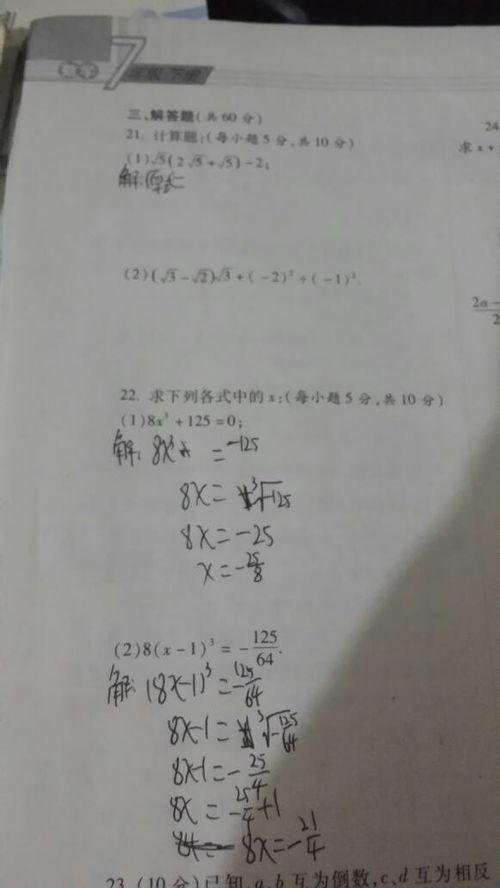 7年级 下册
三、解答题(共60分)
21. 计算题:(每小题5分,共10分)
(1)√5(2√5+√5)-2;
解:原式=
(2)(√3-√2)√3+(-2)²÷(-1)³.
22. 求下列各式中的x:(每小题5分,共10分)
(1)8x³+125=0;
解: 8x³ =-125
8x=³√-125
8x=-25
x=-25/8
(2)8(x-1)³=-125/64.
解: (8x-1)³=-125/64
8x-1=³√-125/64
8x-1=-25/4
8x=-25/4+1
8x=-21/4
23.(10分)已知,a、b互为倒数,c、d互为相反
24
求x+
2a-
2